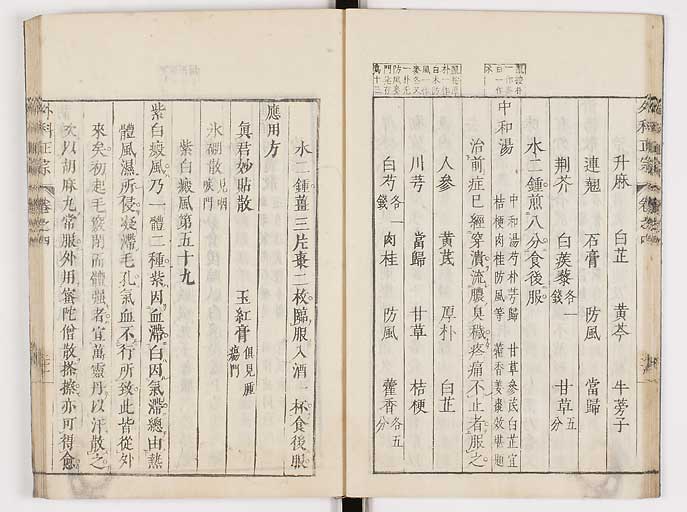 外科正宗 卷之四
升麻 白芷 黄芩 牛蒡子
連翹 石膏 防風 當歸
荊芥 白蒺藜各一錢 甘草五分
水二鍾煎八分食後服
中和湯 中和湯芍朴芎歸 甘草參芪白芷宜 桔梗肉桂防風等 藿香姜棗效堪題
治前症已經穿潰流膿臭穢疼痛不止者服之
人參 黄芪 厚朴 白芷
川芎 當歸 甘草 桔梗
白芍各一錢 肉桂 防風 藿香各五分
水二鍾薑三片棗二枚臨服入酒一杯食後服
應用方
眞君妙貼散 玉紅膏俱見腫瘍門
氷硼散見咽喉門
紫白癜風第五十九
紫白癜風乃一體二種紫因血滯白因氣滯總由熱
體風濕所侵凝滯毛孔氣血不行所致此皆從外
來矣初起毛竅閉而體强者宜萬靈丹以汗散之
次以胡麻丸常服外用密陀僧散搽擦亦可得愈
外科正宗 卷之四